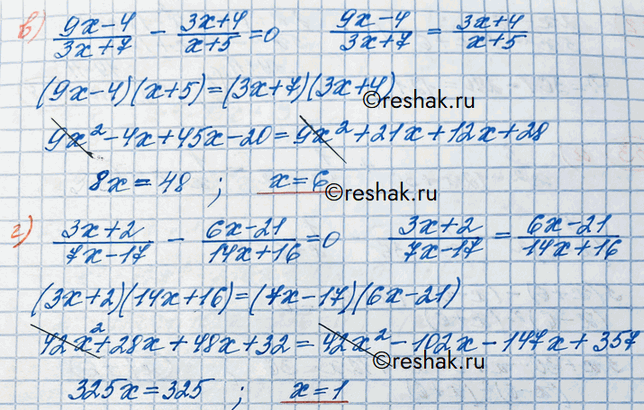 в) (9x-4)/(3x+7) - (3x+4)/(x+5) =0   (9x-4)/(3x+7) = (3x+4)/(x+5)
(9x-4)(x+5)=(3x+7)(3x+4)
©reshak.ru
9x²-4x+45x-20=9x²+21x+12x+28
8x=48 ; x=6
©reshak.ru
г) (3x+2)/(7x-17) - (6x-21)/(14x+16) =0   (3x+2)/(7x-17) = (6x-21)/(14x+16)
(3x+2)(14x+16)=(7x-17)(6x-21)
42x²+28x+48x+32=42x²-102x-147x+357
©reshak.ru
325x=325 ; x=1